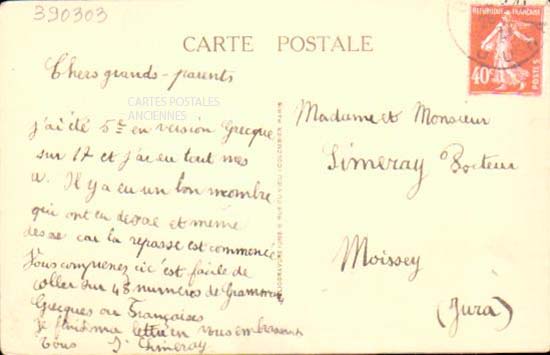 390303
CARTE POSTALE
REPUBLIQUE FRANÇAISE
40c
POSTES
Chers grands-parents
CARTES POSTALES
ANCIENNES
j'ai été 5e en version Grecque
sur 17 et j'ai eu tout mes
a. Il y a eu un bon nombre
qui ont eu des ae et même
des ae car la repasse est commencé
Vous comprenez ici c'est facile de
coller sur 48 numéros de Grammaire
Grecques ou Françaises
Je finis ma lettre en vous embrassant
Tous J Simeray
Madame et Monsieur
Simeray Docteur
Moissey
(Jura)
RUE DU VIEUX COLOMBIER PARIS